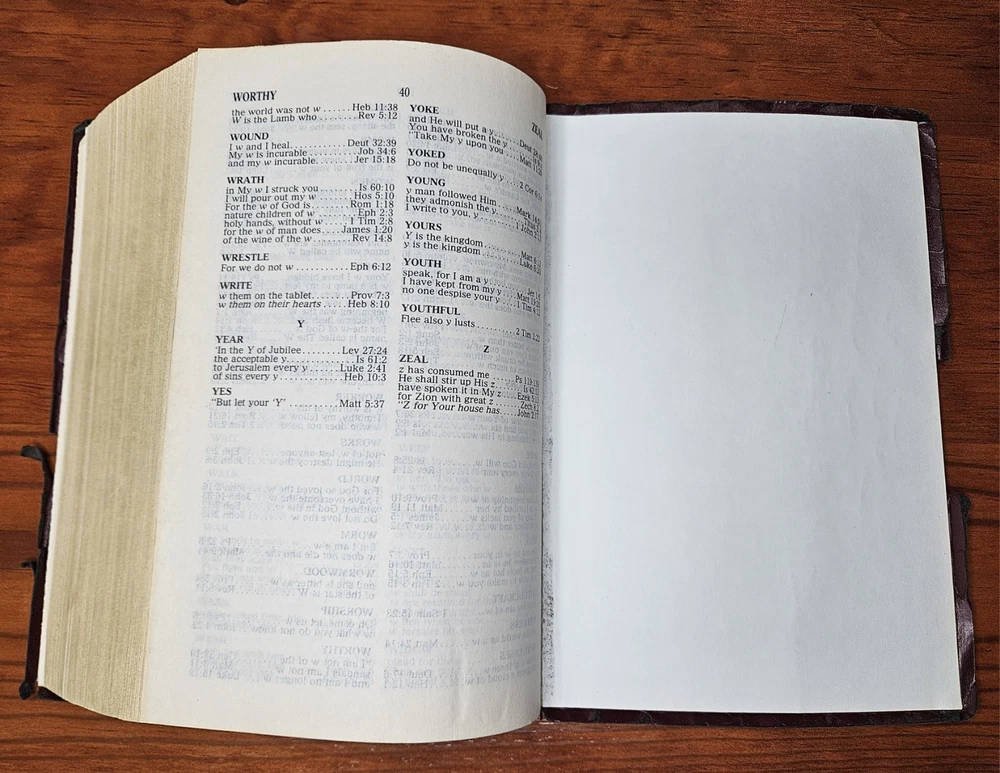 WORTHY
40
ZEAL
the world was not w ...... Heb 11:38
W is the Lamb who ........ Rev 5:12
WOUND
I w and I heal............ Deut 32:39
My w is incurable ........ Job 34:6
and my w incurable........ Jer 15:18
WRATH
in My w I struck you ........ Is 60:10
I will pour out my w ...... Hos 5:10
For the w of God is........ Rom 1:18
nature children of w ........ Eph 2:3
holy hands, without w .. 1 Tim 2:8
for the w of man does.... James 1:20
of the wine of the w........ Rev 14:8
WRESTLE
For we do not w ............ Eph 6:12
WRITE
w them on the tablet........ Prov 7:3
w them on their hearts .... Heb 8:10
Y
YEAR
'In the Y of Jubilee........ Lev 27:24
the acceptable y.............. Is 61:2
to Jerusalem every y...... Luke 2:41
of sins every y ............ Heb 10:3
YES
"But let your 'Y' .......... Matt 5:37
YOKE
and He will put a y...... Deut
You have broken the y
"Take My y upon you .... Matt
YOKED
Do not be unequally y .... 2 Cor 6:14
YOUNG
y man followed Him........ Mark
they admonish the y
I write to you, y.......... 1 John
YOURS
Y is the kingdom.......... Matt
y is the kingdom.......... Luke 6:20
YOUTH
speak, for I am a y........ Jer 1:6
I have kept from my y .... Matt
no one despise your y .... 1 Tim 4:12
YOUTHFUL
Flee also y lusts .......... 2 Tim
Z
ZEAL
z has consumed me........ Ps
He shall stir up His z...... Is
have spoken it in My z .... Ezek
for Zion with great z ...... Zech
"Z for Your house has...... John